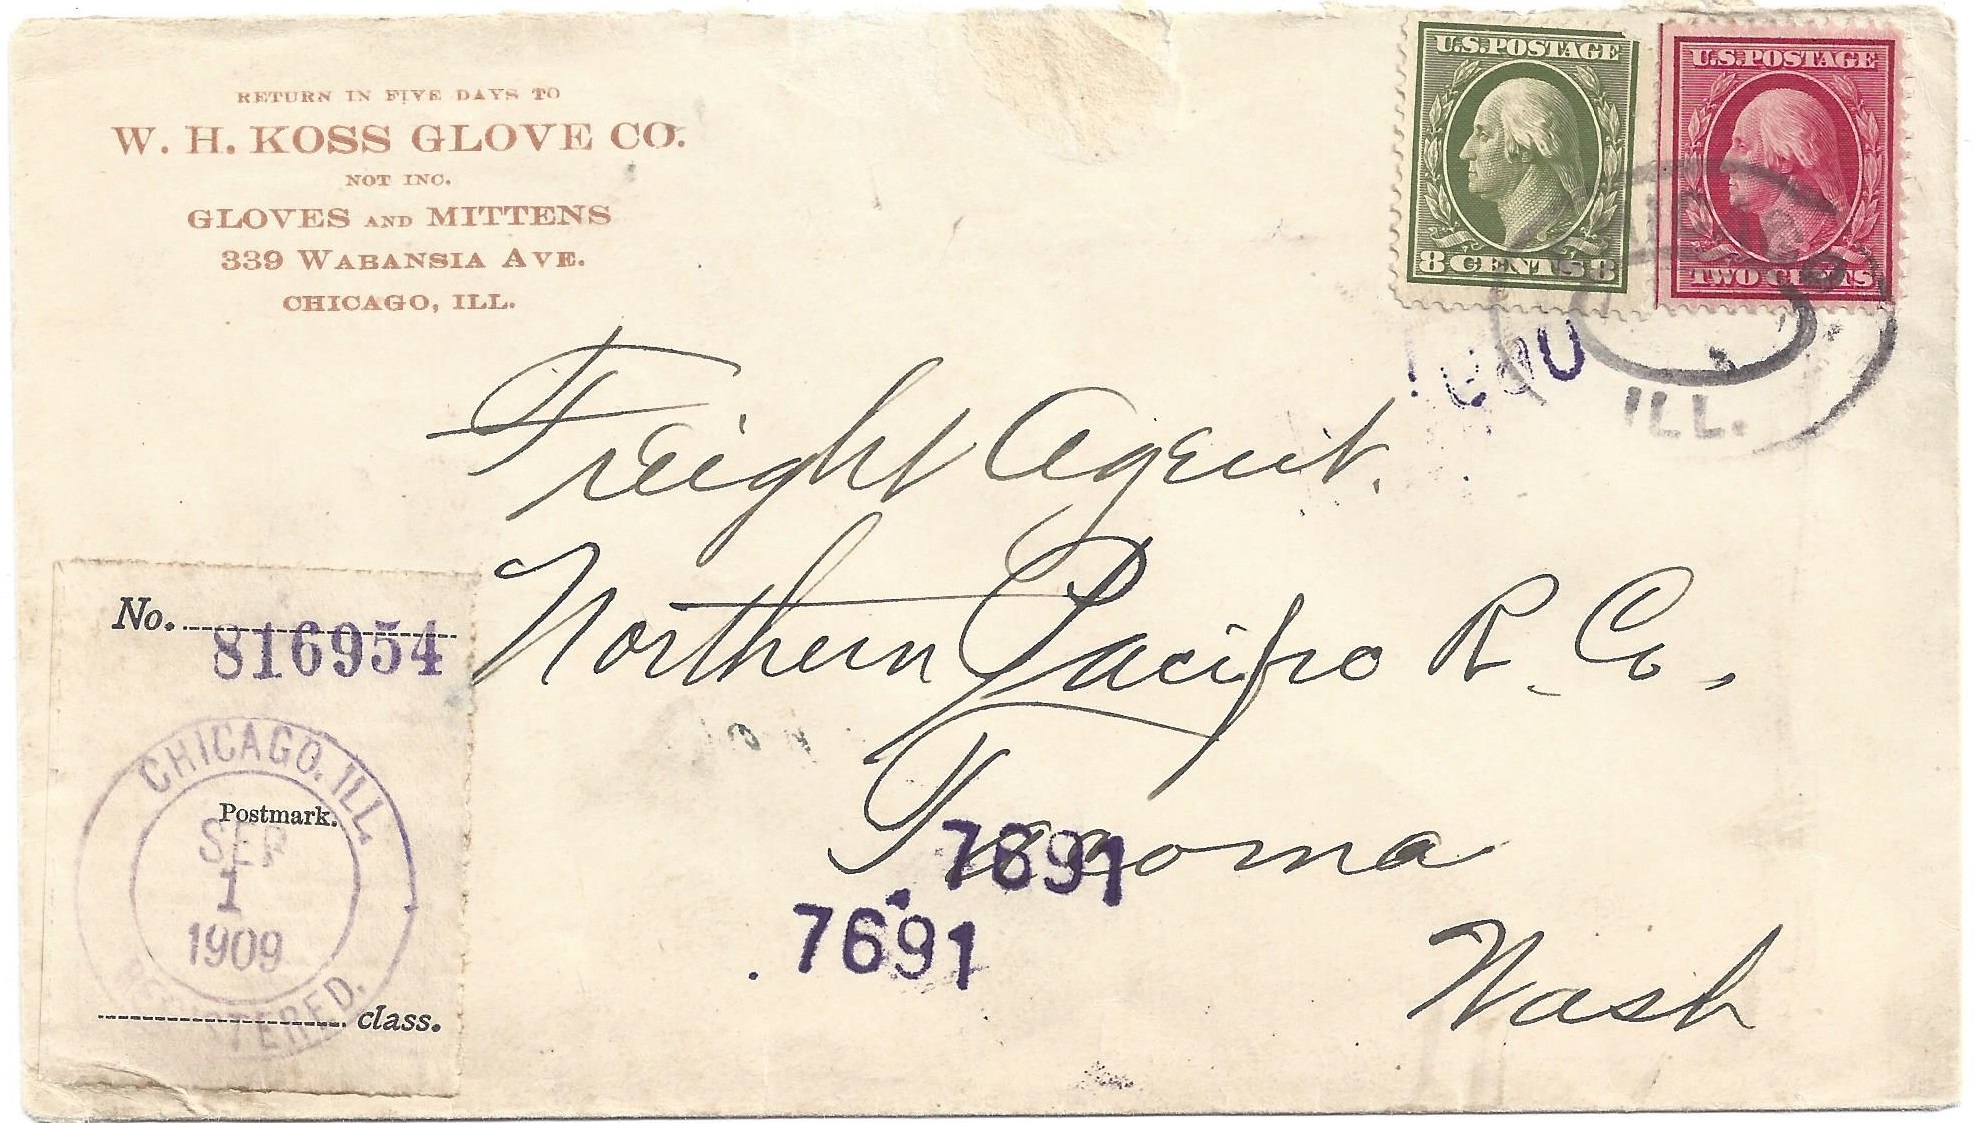 RETURN IN FIVE DAYS TO
W. H. KOSS GLOVE CO.
NOT INC.
GLOVES AND MITTENS
339 WABANSIA AVE.
CHICAGO, ILL.
U.S. POSTAGE
8 CENTS 8
U.S. POSTAGE
TWO CENTS
ILL.
Freight Agent.
Northern Pacific R. Co,
Tacoma
Wash
7691
7691
No. 816954
CHICAGO, ILL.
Postmark.
SEP
1
1909
REGISTERED.
class.